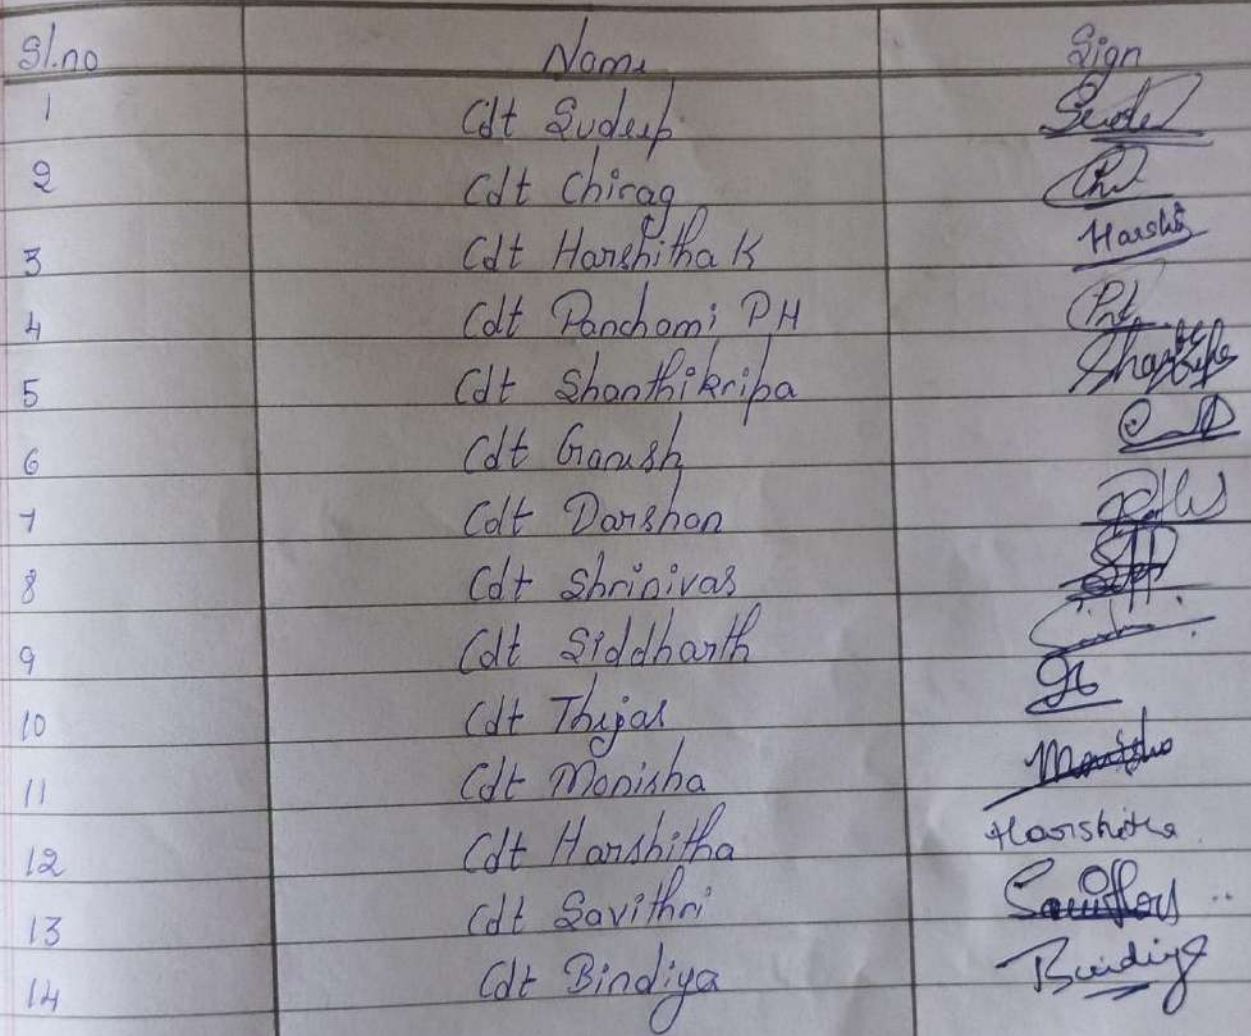 Sl.no Name Sign
1 Cdt Sudeep
2 Cdt Chirag
3 Cdt Harshitha K Harshi
4 Cdt Panchami P H
5 Cdt Shanthikripa
6 Cdt Ganesh
7 Cdt Darshan
8 Cdt Shrinivas
9 Cdt Siddharth
10 Cdt Thejas
11 Cdt Monisha Monisha
12 Cdt Harshitha Harshitha
13 Cdt Savithri
14 Cdt Bindiya Bindiya